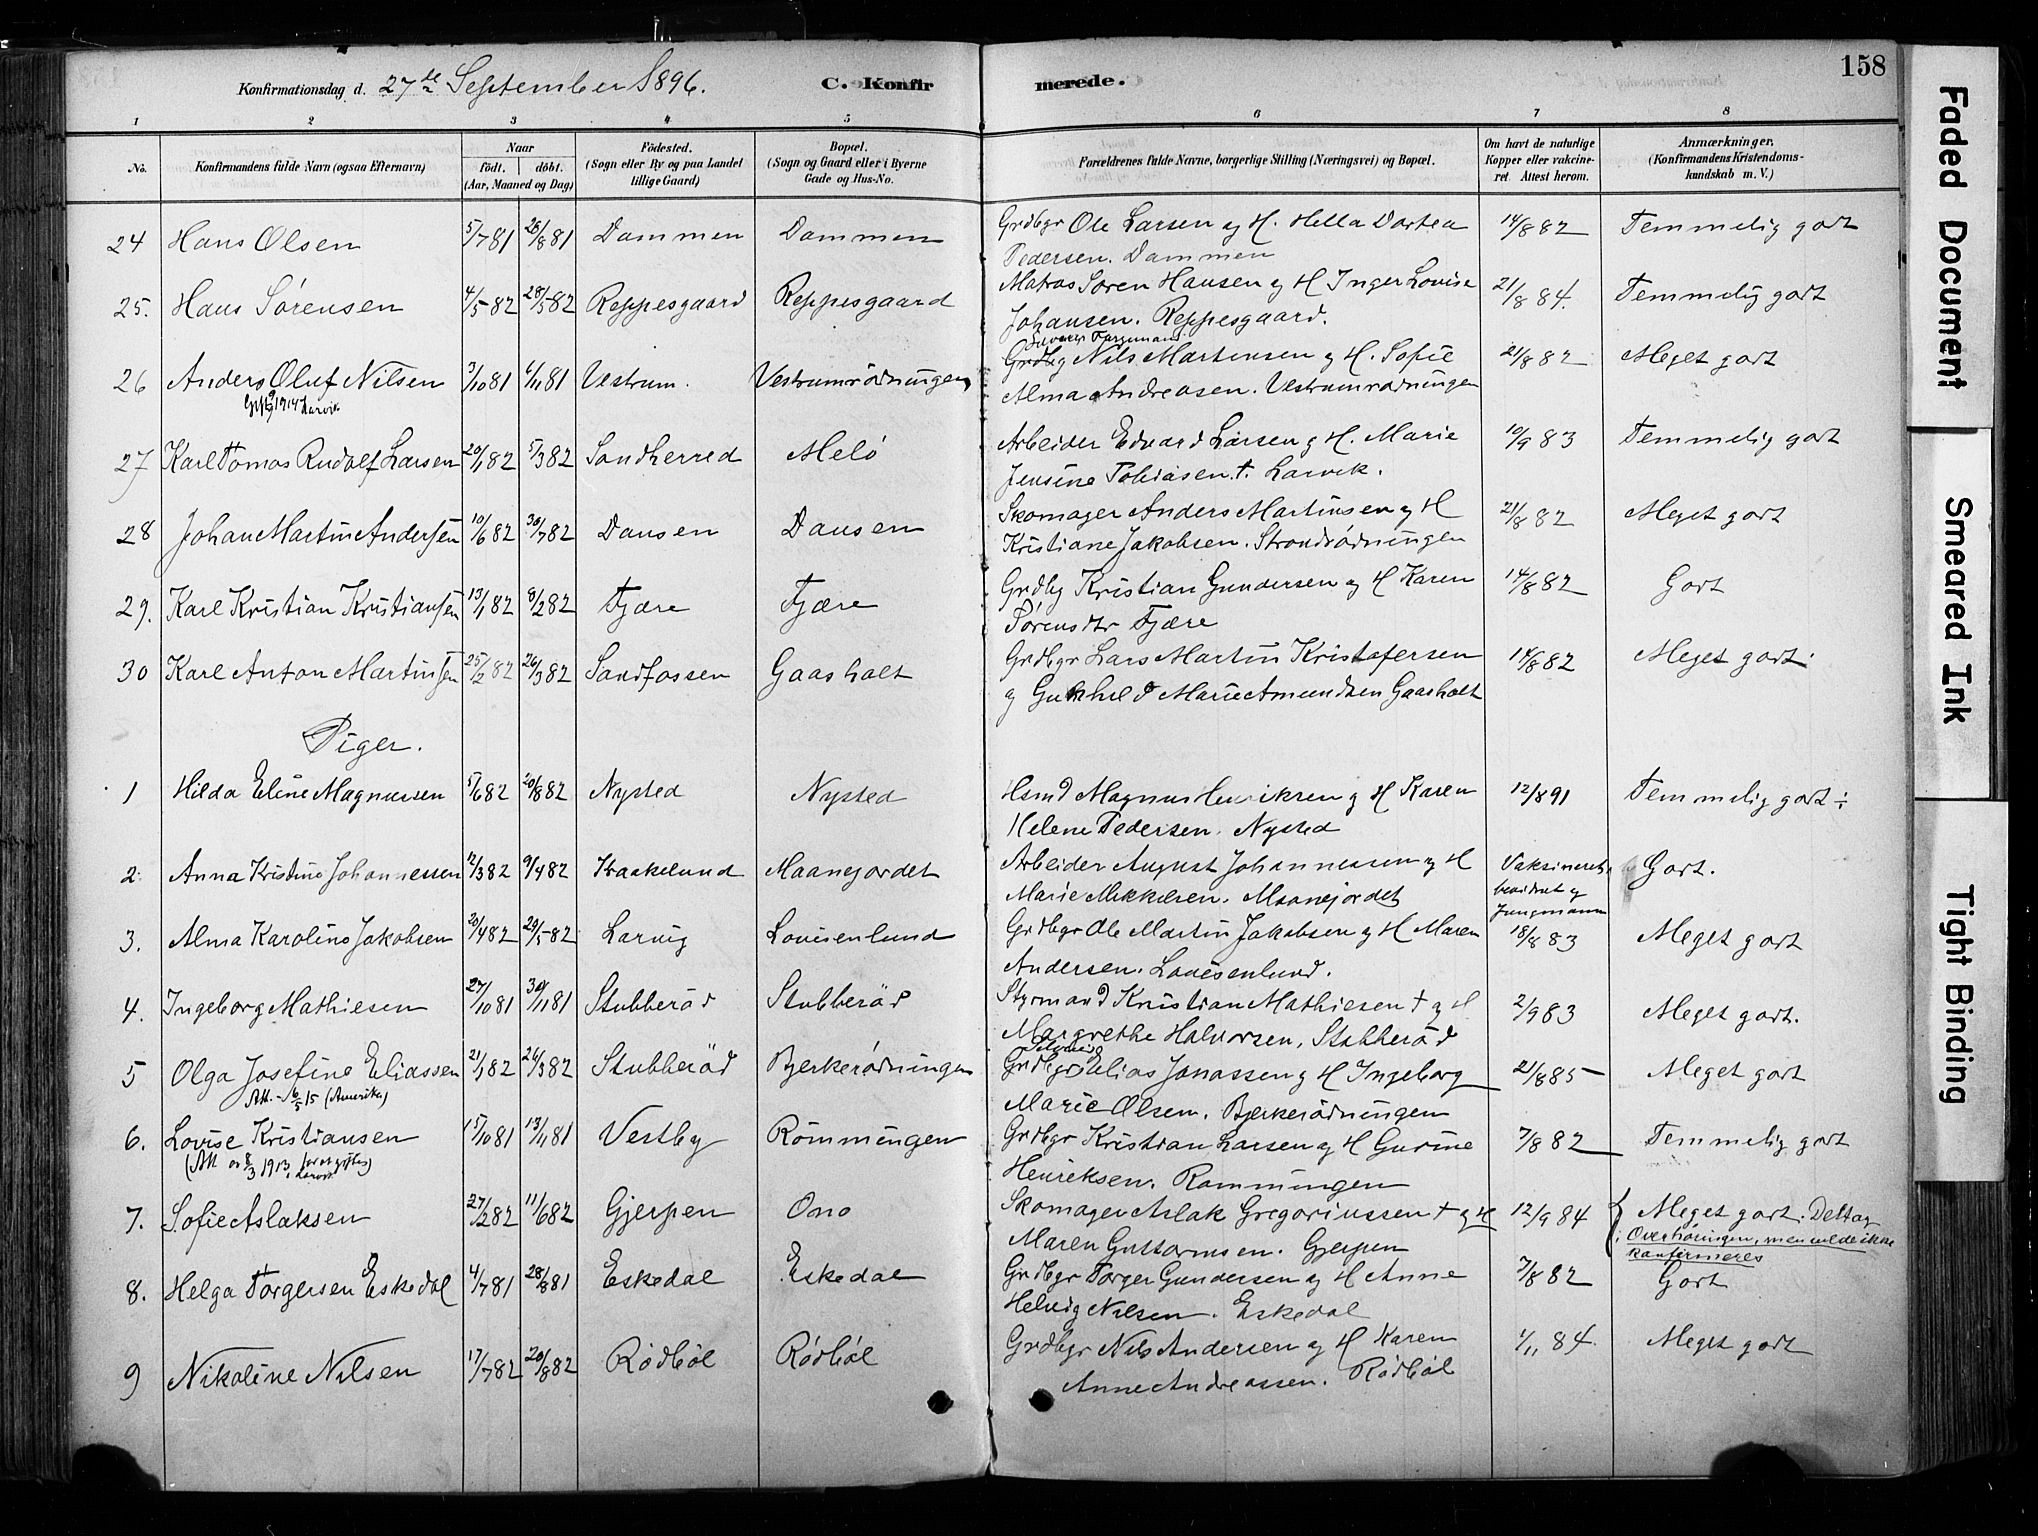 158
Konfirmationsdag d. 27de September 1896.
C. Konfirmerede.
1 2 3 4 5 6 7 8
No. Konfirmandens fulde Navn (ogsaa Efternavn) Naar Født. døbt. (Aar, Maaned og Dag) Fødested. (Sogn eller By og paa Landet tillige Gaard) Bopæl. (Sogn og Gaard eller i Byerne Gade og Hus-No. Forældrenes fulde Navne, borgerlige Stilling (Næringsvei) og Bopæl. Om havt de naturlige Kopper eller vakcineret. Attest herom. Anmærkninger. (Konfirmandens Kristendomskundskab m. V.)
24 Hans Olsen 5/7 81 28/8 81 Dammen Dammen Grdbgr Ole Larsen og H. Hella Dortea 14/8 82 Temmelig godt
Pedersen. Dammen
25. Hans Sørensen 4/5 82 28/5 82 Reppesgaard Reppesgaard Matros Søren Hansen og H Inger Lovise 21/8 84. Temmelig godt
Johansen. Reppesgaard.
26 Anders Oluf Nilsen 3/10 81 6/11 81 Vestrum. Vestrumrødningen Grdbg Nils Martinsen og H. Sofie 21/8 82 Meget godt
1914 Larvik Alma Andreasen. Vestrumrødningen
27 Karl Tomas Rudolf Larsen 20/1 82 5/3 82 Sandherred Melø Arbeider Edvard Larsen og H. Marie 10/9 83 Temmelig godt
Jensine Tobiasen. †. Larvik.
28 Johan Martin Andersen 10/6 82 30/7 82 Dansen Dansen Skomager Anders Martinsen og H 21/8 82 Meget godt
Kristiane Jakobsen. Strandrødningen
29. Karl Kristian Kristiansen 13/1 82 8/2 82 Fjære Fjære Grdbg Kristian Gundersen og H Karen 14/8 82 Godt
Sørensdtr Fjære
30 Karl Anton Martinsen 25/2 82 26/3 82 Sandfossen Gaasholt Grdbgr Lars Martin Kristofersen 14/8 82 Meget godt
og Gunhild Marie Amundsen Gaasholt
Piger.
1 Hilda Eline Magnussen 5/6 82 20/8 82 Nysted Nysted Hsmd Magnus Henriksen og H Karen 12/8 91 Temmelig godt ÷
Helene Pedersen. Nysted
2. Anna Kristine Johannessen 12/3 82 9/4 82 Kraakelund Maanejordet Arbeider August Johannessen og H Vaksineret Godt.
Marie Mikkelsen. Maanejordet bevidnet af
Jungmann
3. Alma Karoline Jakobsen 20/4 82 29/5 82 Larvig Lovisenlund Grdbgr Ole Martin Jakobsen og H Maren 18/8 83 Meget godt
Andersen. Lovisenlund.
4. Ingeborg Mathiesen 27/10 81 30/11 81 Stubberød Stubberød Styrmand Kristian Mathiesen † og H 2/9 83 Meget godt.
Margrethe Halvorsen, Stubberød
5 Olga Josefine Eliassen 21/1 82 26/3 82 Stubberød Bjerkerødningen Grdbgr Elias Jonassen og H Ingeborg 21/8 85 Meget godt
Att. 6/5 15 (Amerika) Marie Olsen. Bjerkerødningen
6. Lovise Kristiansen 15/10 81 13/11 81 Vestby Rømmingen Grdbgr Kristian Larsen og H Gurine 7/8 82 Temmelig godt
(Att 8/3 1913 Larvik) Henriksen. Rømmingen
7. Sofie Aslaksen 27/2 82 11/6 82 Gjerpen Ono Skomager Aslak Gregoriussen † og H 12/9 84 Meget godt. Deltog
Maren Guttormsen. Gjerpen i Overhøringen, men vilde ikke
konfirmeres
8. Helga Torgersen Eskedal 4/7 81 28/8 81 Eskedal Eskedal Grdbgr Torger Gundersen og H Anne 7/8 82 Godt
Helvig Nilsen. Eskedal
9 Nikoline Nilsen 17/7 82 20/8 82 Rødbøl Rødbøl Grdbgr Nils Andersen og H Karen 1/11 84. Meget godt
Anne Andreassen. Rødbøl
Faded Document
Smeared Ink
Tight Binding